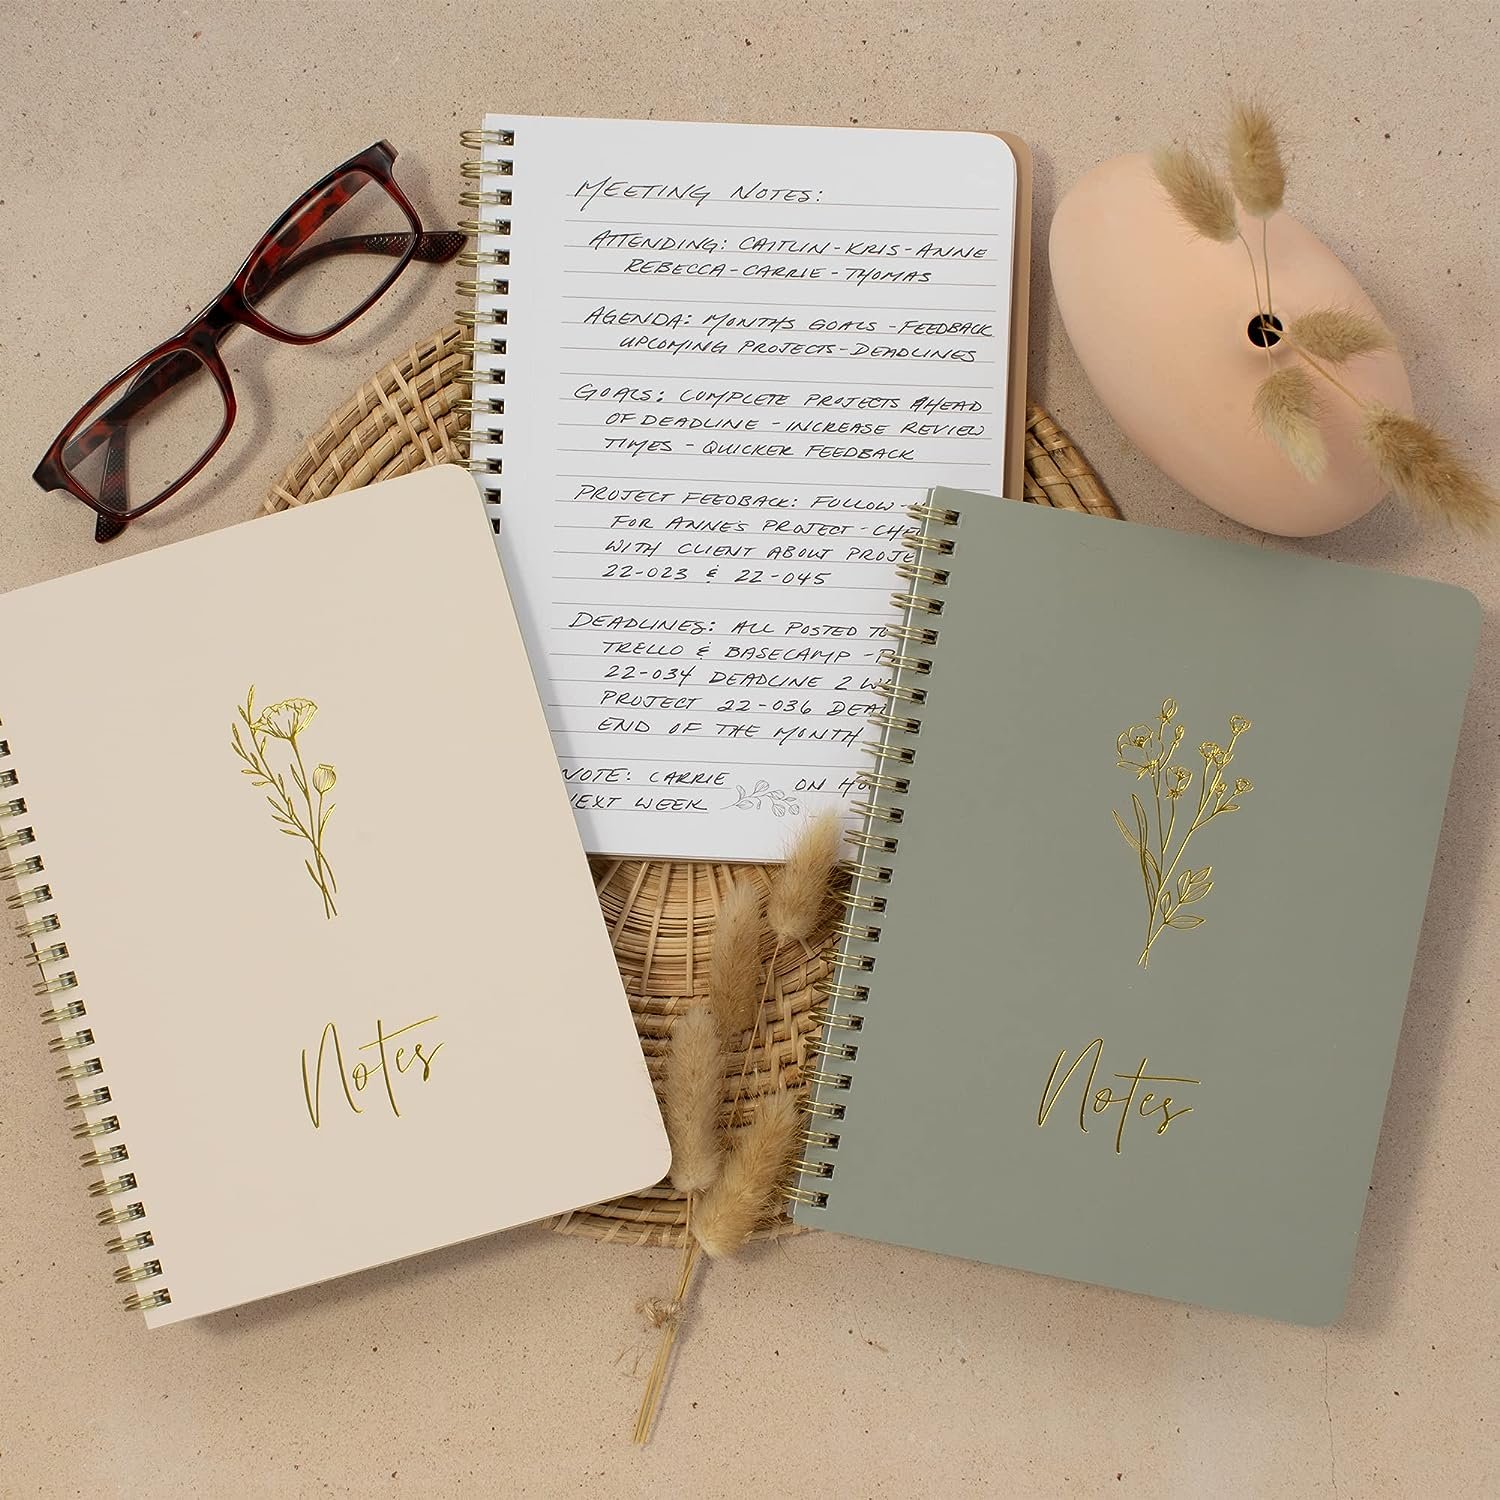 MEETING NOTES:
ATTENDING: CAITLIN-KRIS-ANNE
REBECCA-CARRIE-THOMAS
AGENDA: MONTH'S GOALS - FEEDBACK
UPCOMING PROJECTS-DEADLINES
GOALS: COMPLETE PROJECTS AHEAD
OF DEADLINE - INCREASE REVIEW
TIMES - QUICKER FEEDBACK
PROJECT FEEDBACK: FOLLOW-
FOR ANNE'S PROJECT -
WITH CLIENT ABOUT
22-023 & 22-045
DEADLINES: ALL POSTED TO
TRELLO & BASECAMP -
22-034 DEADLINE 2
PROJECT 22-036
END OF THE MONTH
NOTE: CARRIE ON
NEXT WEEK
Notes
Notes